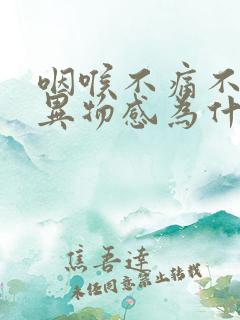 咽喉不痛不
異物感為什
焦吾達
未经同意禁止转载